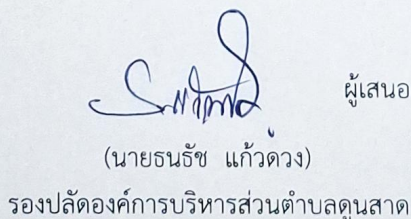 ผู้เสนอ
(นายธนธัช แก้วดวง)
รองปลัดองค์การบริหารส่วนตำบลดูนสาด